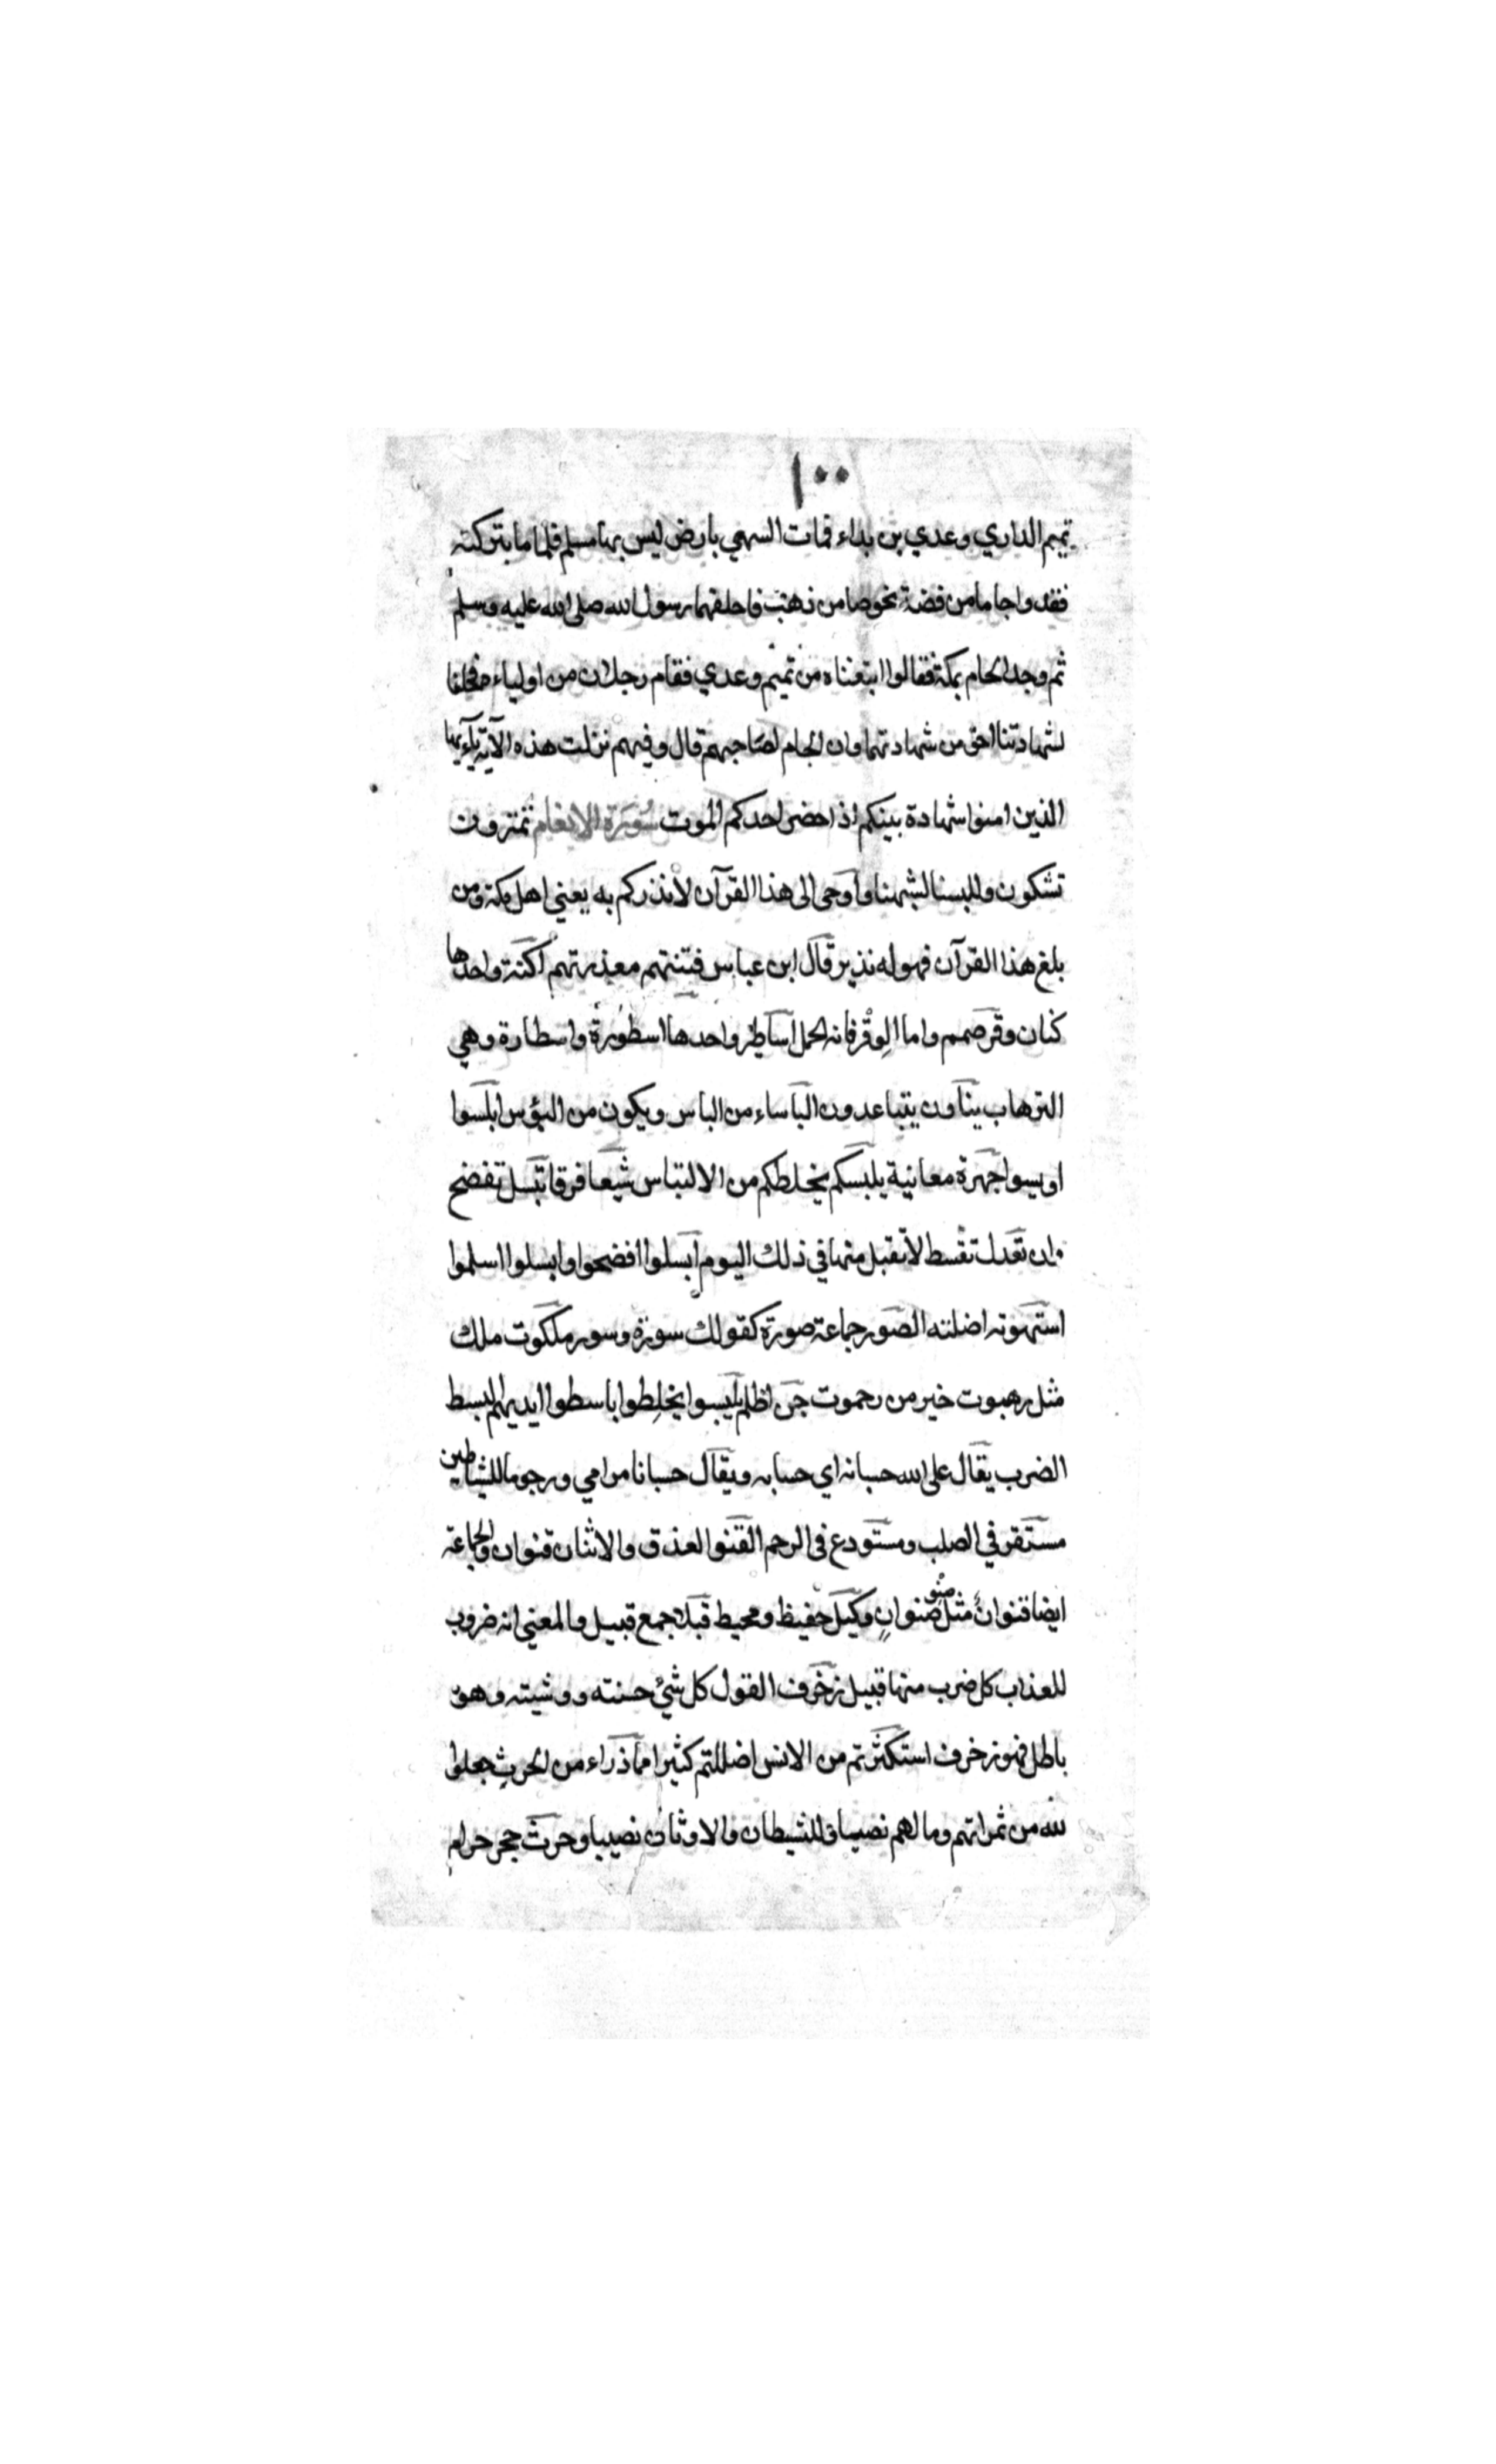 ١٠٠
تميم الداري وعدي بن بداء فمات السهمي بارض ليس بها مسلم فلما ما بتركته
ففدوا جاما من فضة مخوصا من ذهب فاحلفهما رسول الله صلى الله عليه وسلم
ثم وجد الجام بمكة فقالوا ابتعناه من تميم وعدي فقام رجلان من اولياءه فحلفا
لشهادتنا احق من شهادتهما وان الجام لصاحبهم قال وفيهم نزلت هذه الآية يآءيها
الذين امنوا شهادة بينكم اذا حضر احدكم الموت سورة الانعام تمترون
تشكون وللبسنا لشبهنا واوحى الى هذا القرآن لانذركم به يعني اهل مكة ومن
بلغ هذا القرآن فهو له نذير قال ابن عباس فتنتهم معذرتهم اكنة واحدها
كنان وقر صمم واما الوقر فانه الحمل اساطير واحدها اسطورة واسطارة وهي
الترهاب ينأون يتباعدون البأساء من الباس ويكون من البؤس ابلسوا
اويسوا جهرة معاينة يلبسكم يخلطكم من الالتباس شيعا فرقا تبسل تفضح
وان تعدل تقسط لا تقبل منها في ذلك اليوم ابسلوا افضحوا وابسلوا اسلموا
استهوته اضلته الصور جماعة صورة كقولك سورة وسور ملكوت ملك
مثل رهبوت خير من رحموت جن اظلم يلبسوا يخلطوا باسطوا ايديهم البسط
الضرب يقال على الله حسبانه اي حسابه ويقال حسبانا مرامي ورجوما للشياطين
مستقر في الصلب ومستودع في الرحم القنو العذق والاثنان قنوان والجماعة
ايضا قنوان مثل صنو صنوان وكيل حفيظ ومحيط قبلا جمع قبيل والمعني انه ضروب
للعذاب كل ضرب منها قبيل زخرف القول كل شيء حسنته ووشيته وهو
باطل فهو زخرف استكثرتم من الانس اضللتم كثيرا مما ذراء من الحرث جعلوا
لله من ثمراتهم ومالهم نصيبا وللشيطان والاوثان نصيبا وحرث حجر حرام